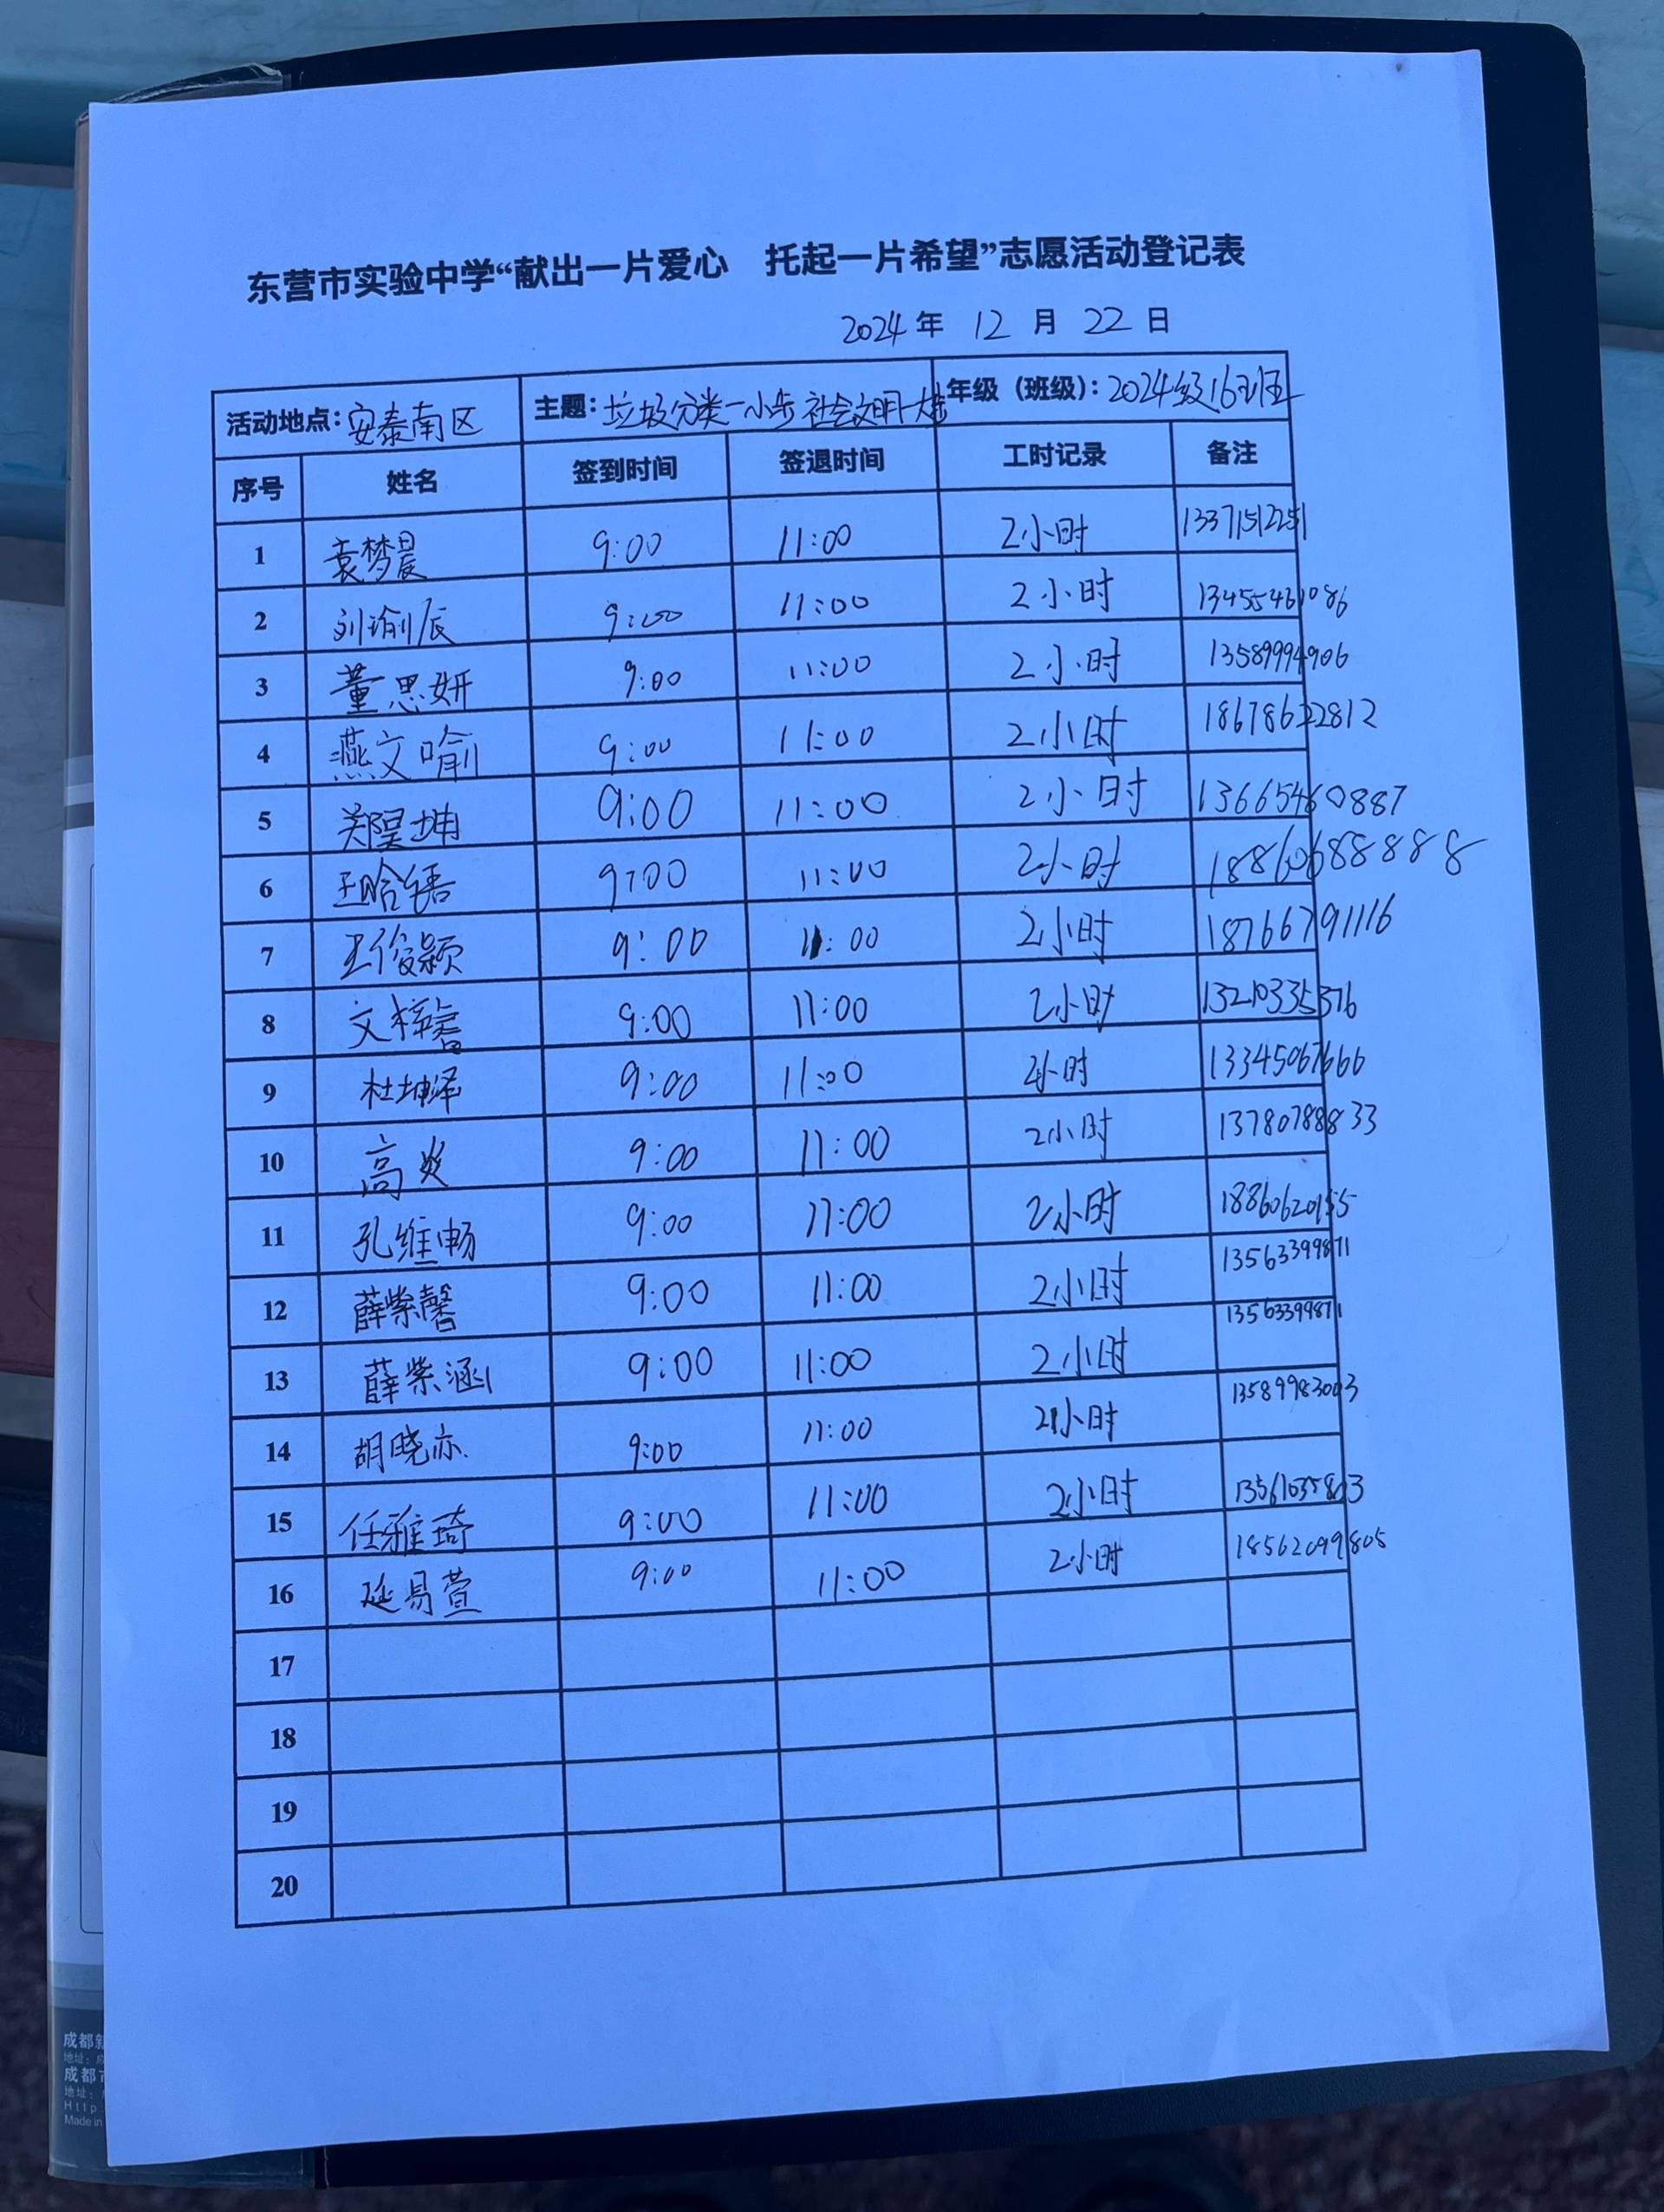 东营市实验中学“献出一片爱心 托起一片希望”志愿活动登记表
2024年 12月 22日
活动地点：安泰南区 主题：垃圾分类一小步 社会文明一大步 年级（班级）：2024级16班
序号 姓名 签到时间 签退时间 工时记录 备注
1 袁梦晨 9:00 11:00 2小时 13371512251
2 刘瑜辰 9:00 11:00 2小时 13455461086
3 董思妍 9:00 11:00 2小时 13589994906
4 燕文喻 9:00 11:00 2小时 18678622812
5 郑昊坤 9:00 11:00 2小时 13665460887
6 9:00 11:00 2小时 18860688888
7 王俊颖 9:00 11:00 2小时 18766791116
8 文梓睿 9:00 11:00 2小时 13210335376
9 杜坤泽 9:00 11:00 2小时 13345067666
10 高炎 9:00 11:00 2小时 13780788833
11 孔维畅 9:00 11:00 2小时 18860620155
12 薛紫馨 9:00 11:00 2小时 13563399871
13 薛紫涵 9:00 11:00 2小时 13563399871
14 胡晓亦 9:00 11:00 2小时 13589983003
15 任雅琦 9:00 11:00 2小时
16 延易萱 9:00 11:00 2小时 18562099805
17
18
19
20
成都
地址：
成都
地址：
Http
Made in